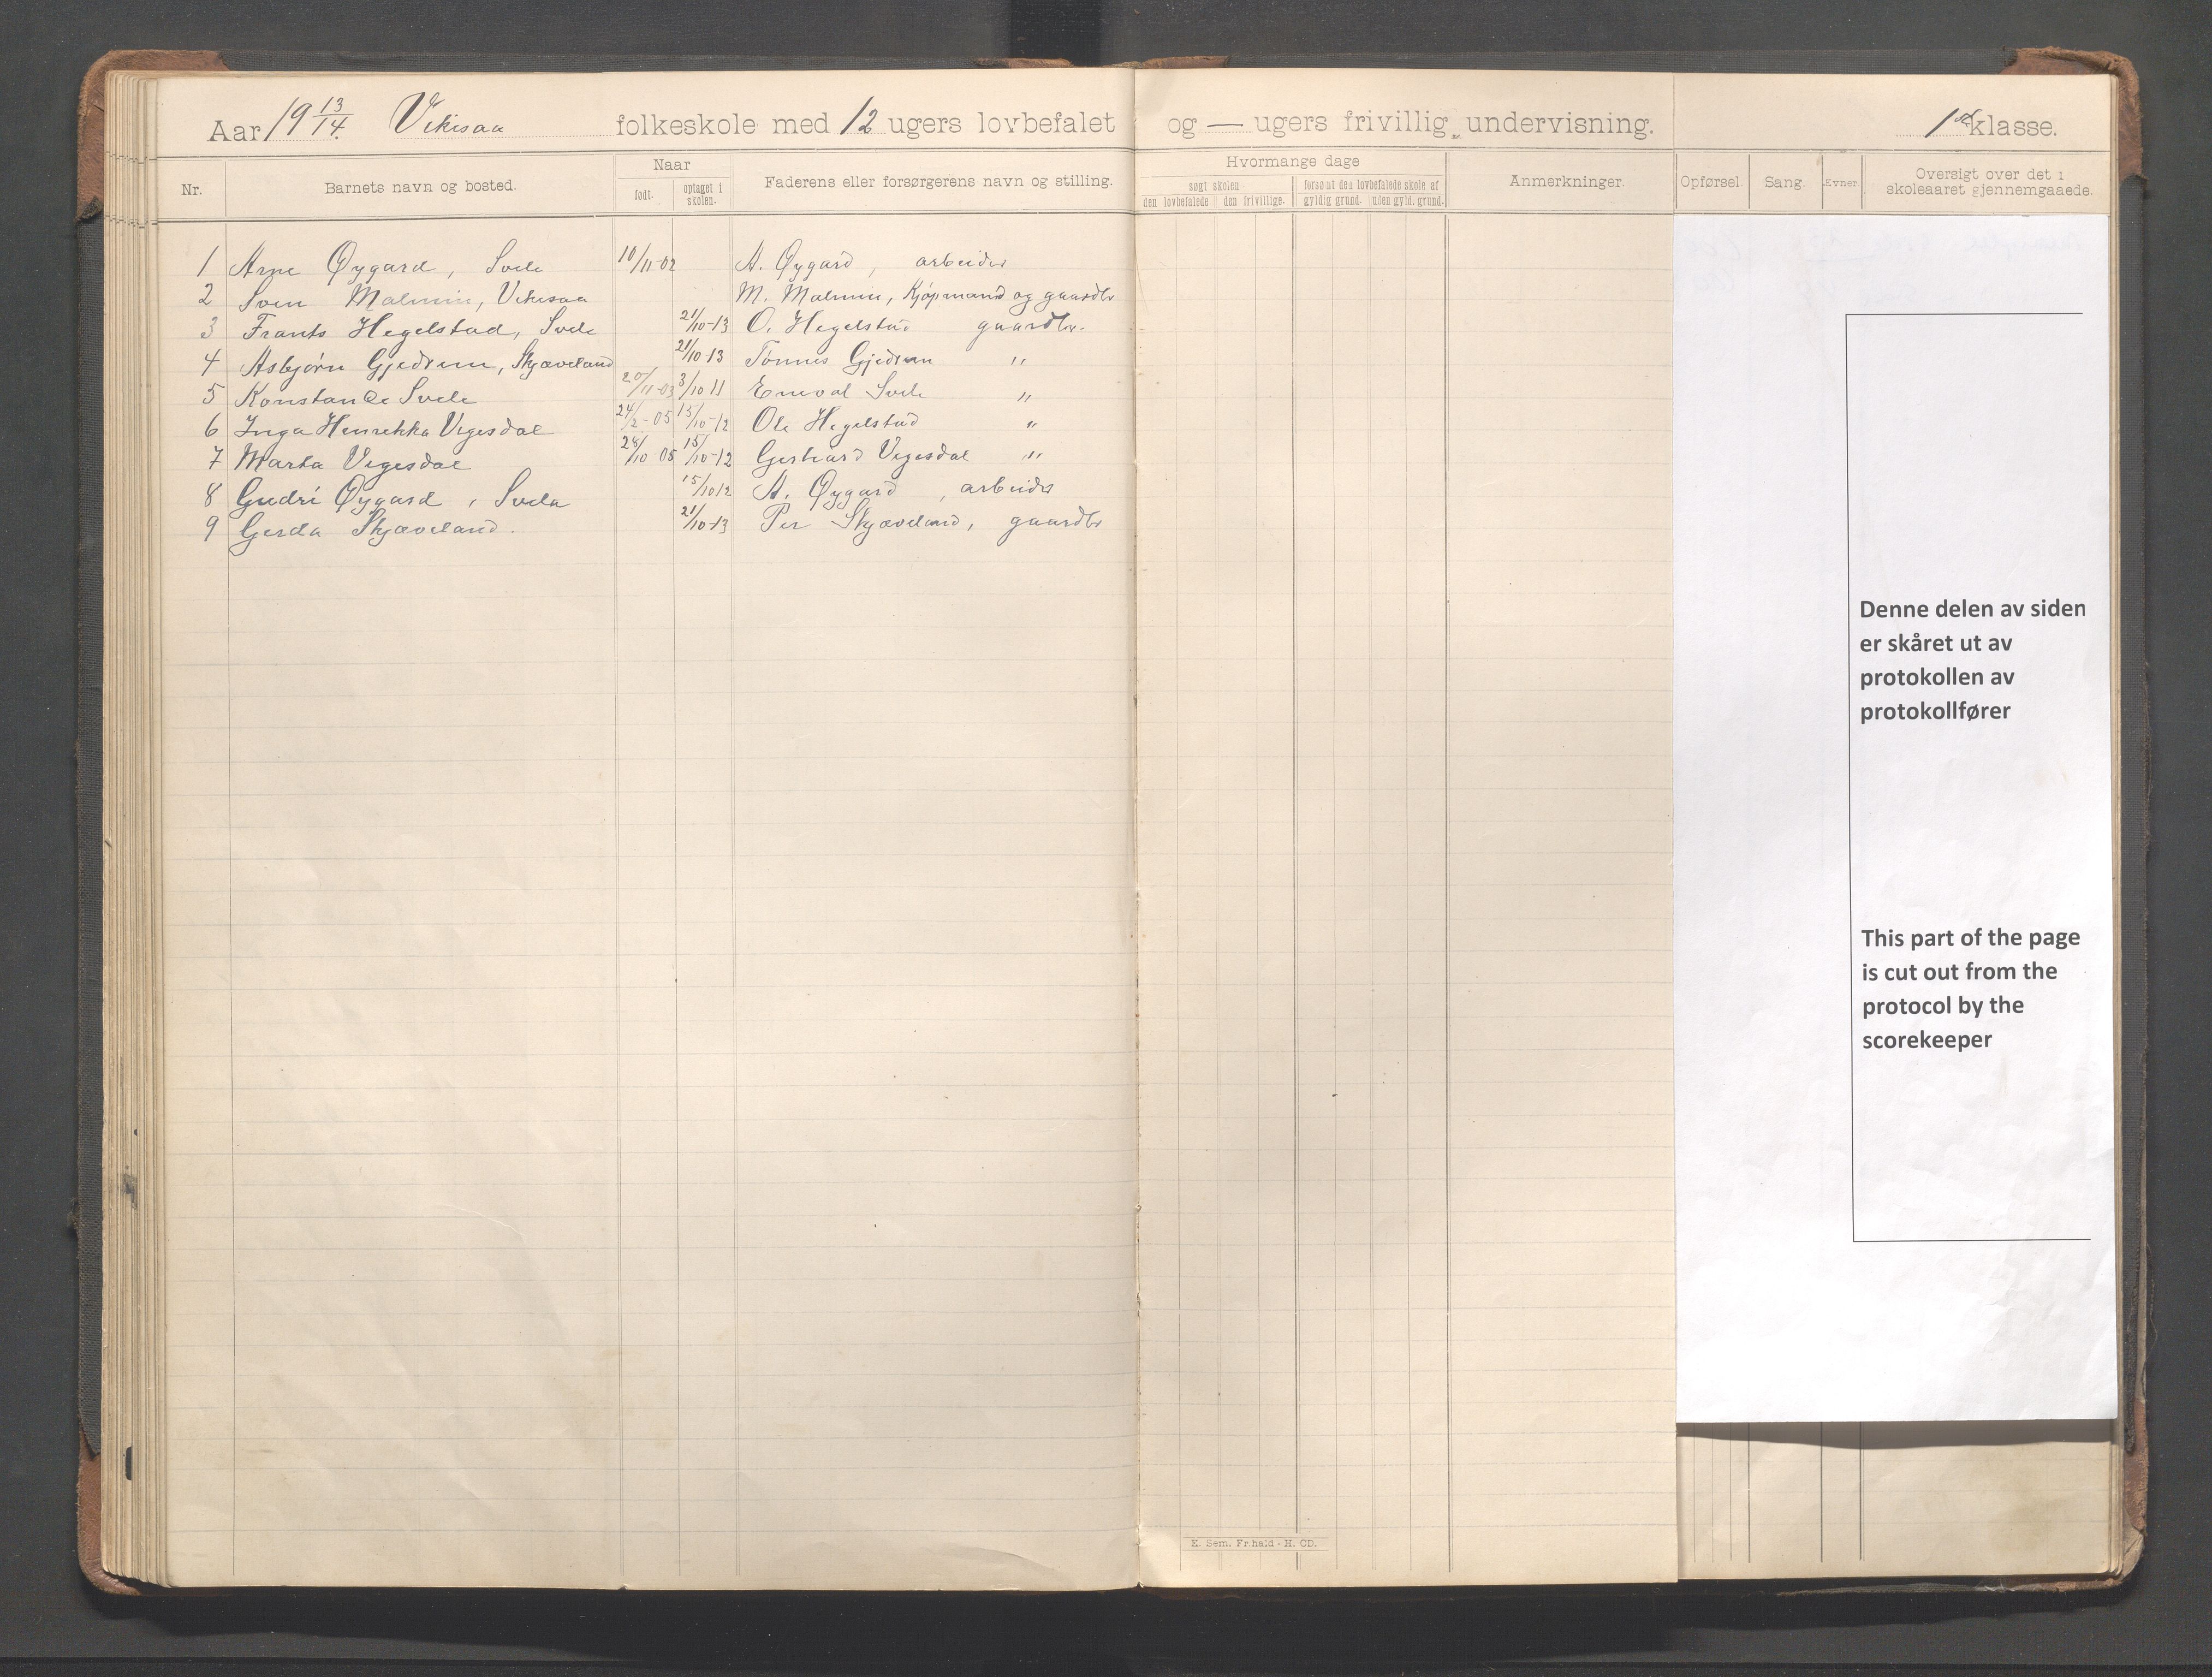 Aar 19 13/14. Vikesaa folkeskole med 12 ugers lovbefalet og — ugers frivillig undervisning. 1ste klasse.
Nr. Barnets navn og bosted. Naar født. optaget i skolen. Faderens eller forsørgerens navn og stilling. Hvormange dage søgt skolen den lovbefalede den frivillige. forsømt den lovbefalede skole af gyldig grund. uden gyld. grund. Anmerkninger. Opførsel. Sang. Evner. Oversigt over det i skoleaaret gjennemgaaede.
1 Arne Øygard, Svele 10/11-02 A. Øygard, arbeider
2 Sven Malmin, Vikesaa M. Malmin, Kjøpmand og gaardbr
3 Frants Hegelstad, Svele 21/10-13 O. Hegelstad gaardbr.
4 Asbjørn Gjedrem, Skjæveland 21/10 13 Tønnes Gjedrem "
5 Konstanse Svele 20/11-03 3/10 11 Enevol Svele "
6 Inga Henrekka Vegesdal 24/2-05 15/10-12 Ole Hegelstad "
7 Marta Vegesdal 28/10 05 15/10-12 Gerhard Vegesdal "
8 Gudri Øygard, Svela 15/10 12 A. Øygard, arbeider
9 Gerda Skjæveland. 21/10-13 Per Skjæveland, gaardbr
Denne delen av siden
er skåret ut av
protokollen av
protokollfører
This part of the page
is cut out from the
protocol by the
scorekeeper
E. Sem. Fr.hald - H. CD.